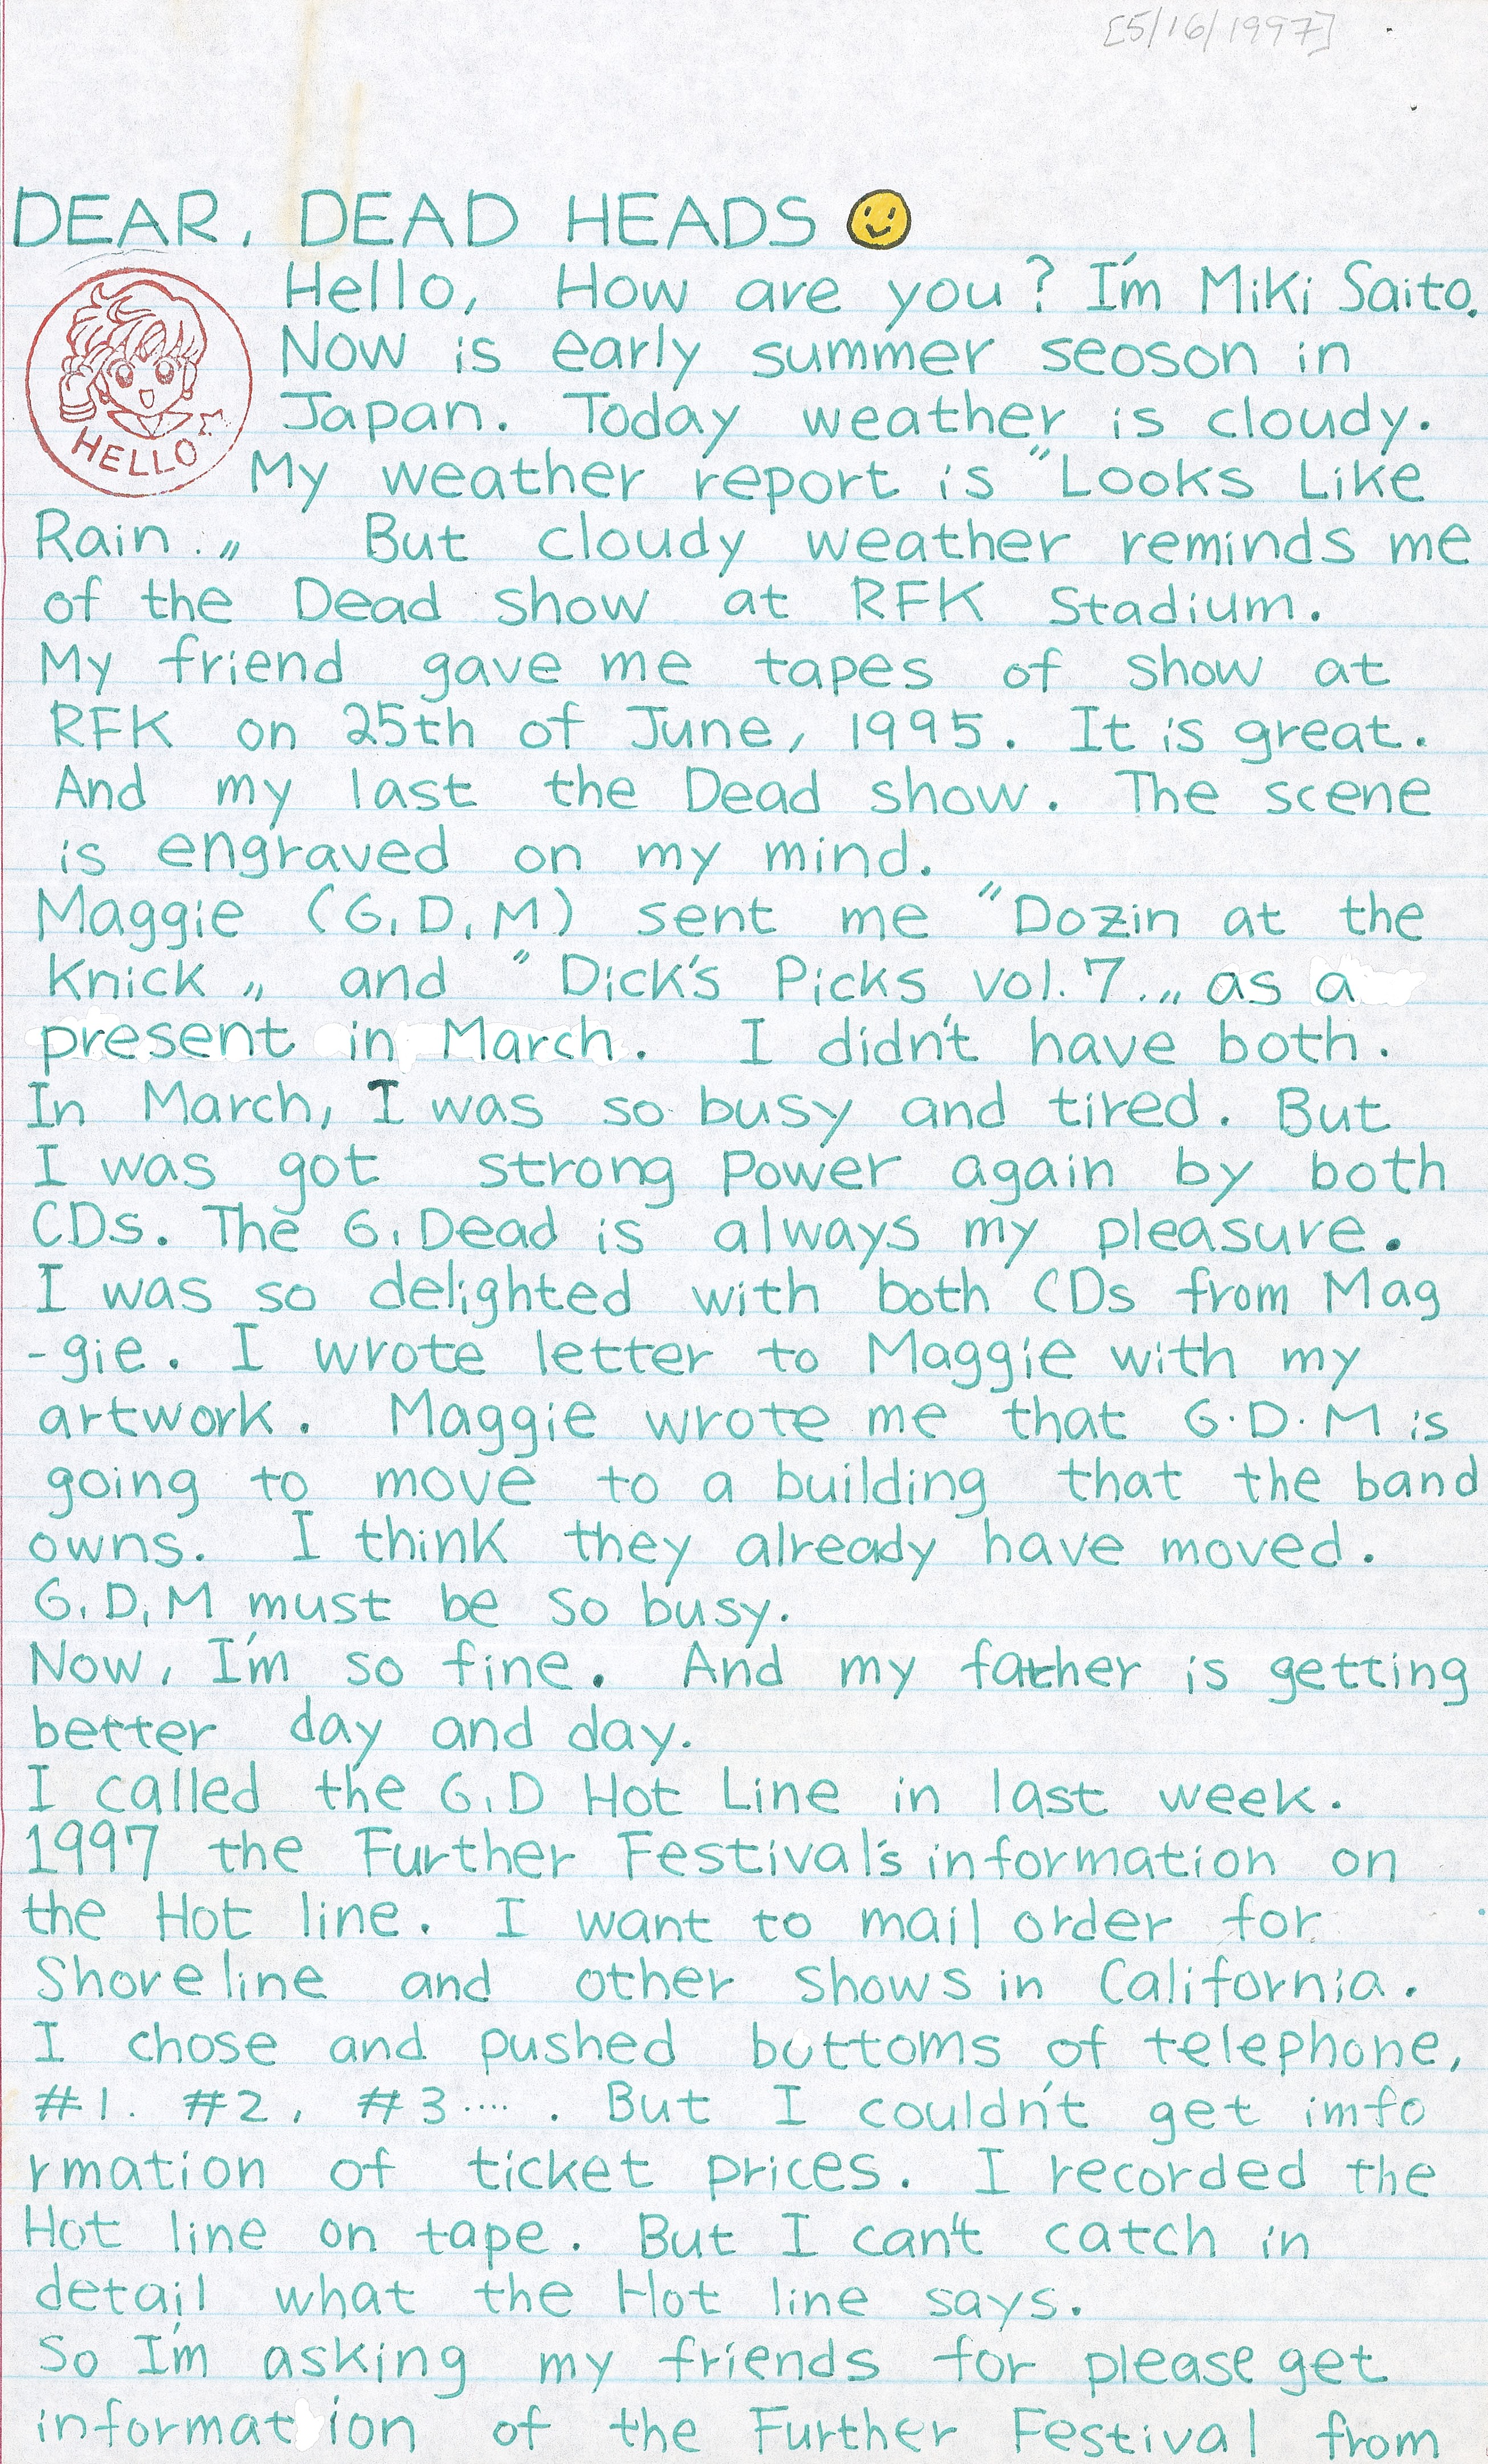 [5/16/1997]
DEAR, DEAD HEADS
Hello, How are you? I'm Miki Saito.
Now is early summer seoson in
Japan. Today weather is cloudy.
HELLO
My weather report is "Looks Like
Rain." But cloudy weather reminds me
of the Dead show at RFK Stadium.
My friend gave me tapes of show at
RFK on 25th of June, 1995. It is great.
And my last the Dead show. The scene
is engraved on my mind.
Maggie (G.D.M) sent me "Dozin at the
Knick" and "Dick's Picks vol.7." as a
present in March. I didn't have both.
In March, I was so busy and tired. But
I was got strong power again by both
CDs. The G.Dead is always my pleasure.
I was so delighted with both CDs from Mag
-gie. I wrote letter to Maggie with my
artwork. Maggie wrote me that G.D.M is
going to move to a building that the band
owns. I think they already have moved.
G.D.M must be so busy.
Now, I'm so fine. And my father is getting
better day and day.
I called the G.D Hot Line in last week.
1997 the Further Festival's information on
the Hot line. I want to mail order for
Shoreline and other shows in California.
I chose and pushed bottoms of telephone,
#1. #2, #3..... But I couldn't get imfo
rmation of ticket prices. I recorded the
Hot line on tape. But I can't catch in
detail what the Hot line says.
So I'm asking my friends for please get
information of the Further Festival from